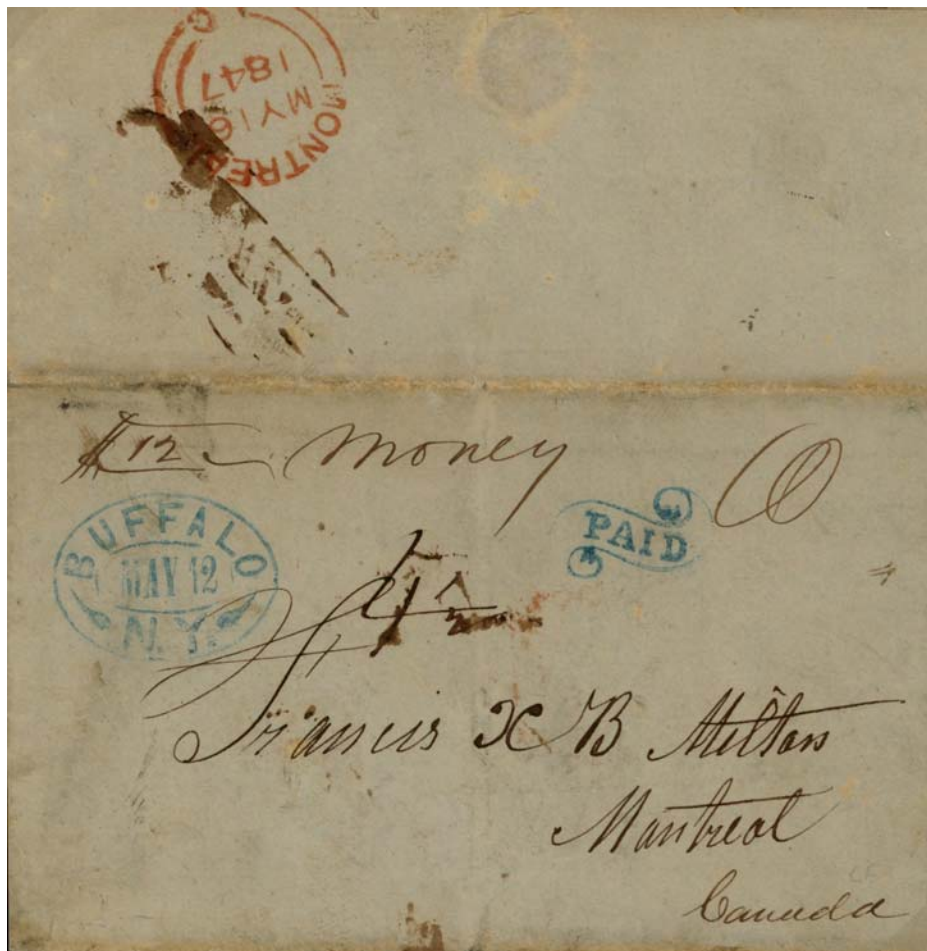 MONTREAL
MY 16
1847
$12 Money
BUFFALO
MAY 12
N.Y.
PAID
Francis X B Milton
Montreal
Canada